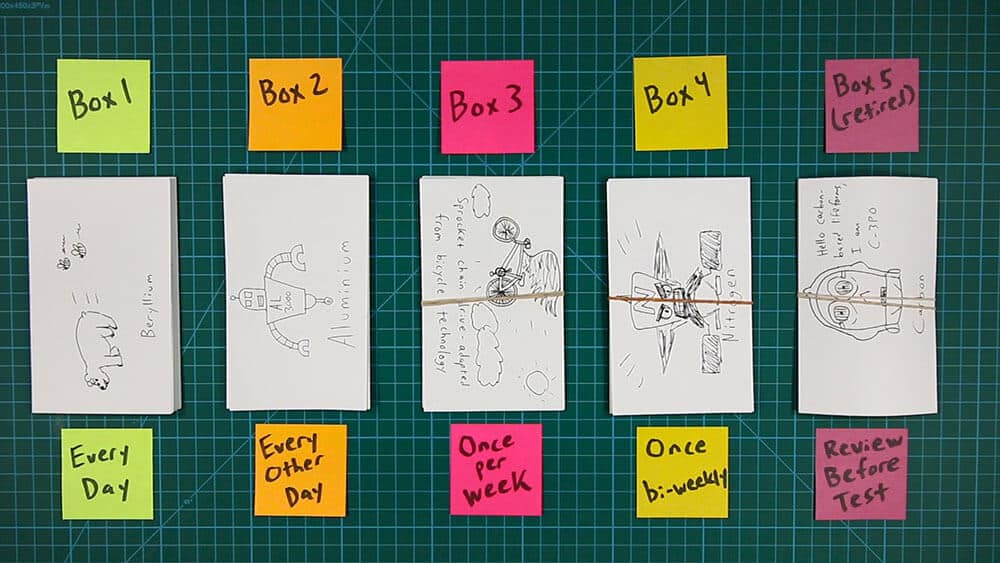 Box 1
Box 2
Box 3
Box 4
Box 5
(retired)
Beryllium
AL
3000
Aluminium
Sprocket chain drive-adapted
from bicycle technology
Nitrogen
Hello carbon-
based lifeforms,
I am
C-3PO
Carbon
Every
Day
Every
Other
Day
Once
per
week
Once
bi-weekly
Review
Before
Test